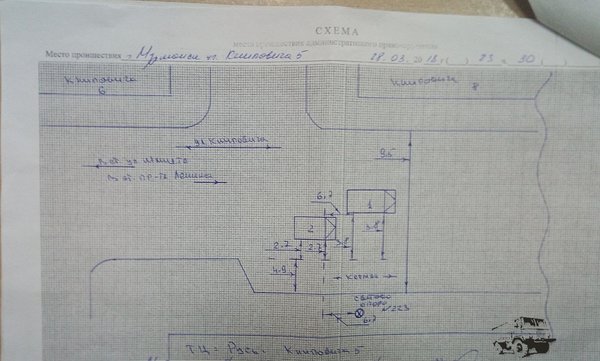 СХЕМА
место происшествия административного правонарушения
Место происшествия г. Мурманск ул. Книповича 5 28.03.2018 г. ( ) 23 ч 30 ( )
Книповича
6
Книповича
8
ул Книповича
В ст. ул Шмидта
В ст. пр-та Ленина
9.5
6,7
1
2
3.8
3.8
2.7
2.7
4.9
карман
опора
№223
6,7
ТЦ "Русь" Книповича 5